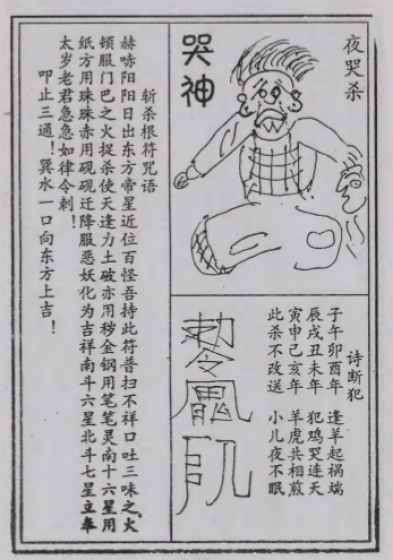 夜哭杀
哭神
诗断犯
子午卯酉年　逢羊起祸端
辰戌丑未年　犯鸡哭连天
寅申己亥年　羊虎共相煎
此杀不改送　小儿夜不眠
斩杀根符咒语
赫哧阳阳日出东方帝星近位百怪吾持此符普扫不祥口吐三味之火
顿服门巴之火捉杀使天逢为土破亦用秽金钢用笔笔灵南十六星用
纸方用珠珠赤用砚砚迁降服恶妖化为吉祥南斗六星北斗七星立奉
太岁老君急急如律令刺！
叩止三通！巽水一口向东方上吉！